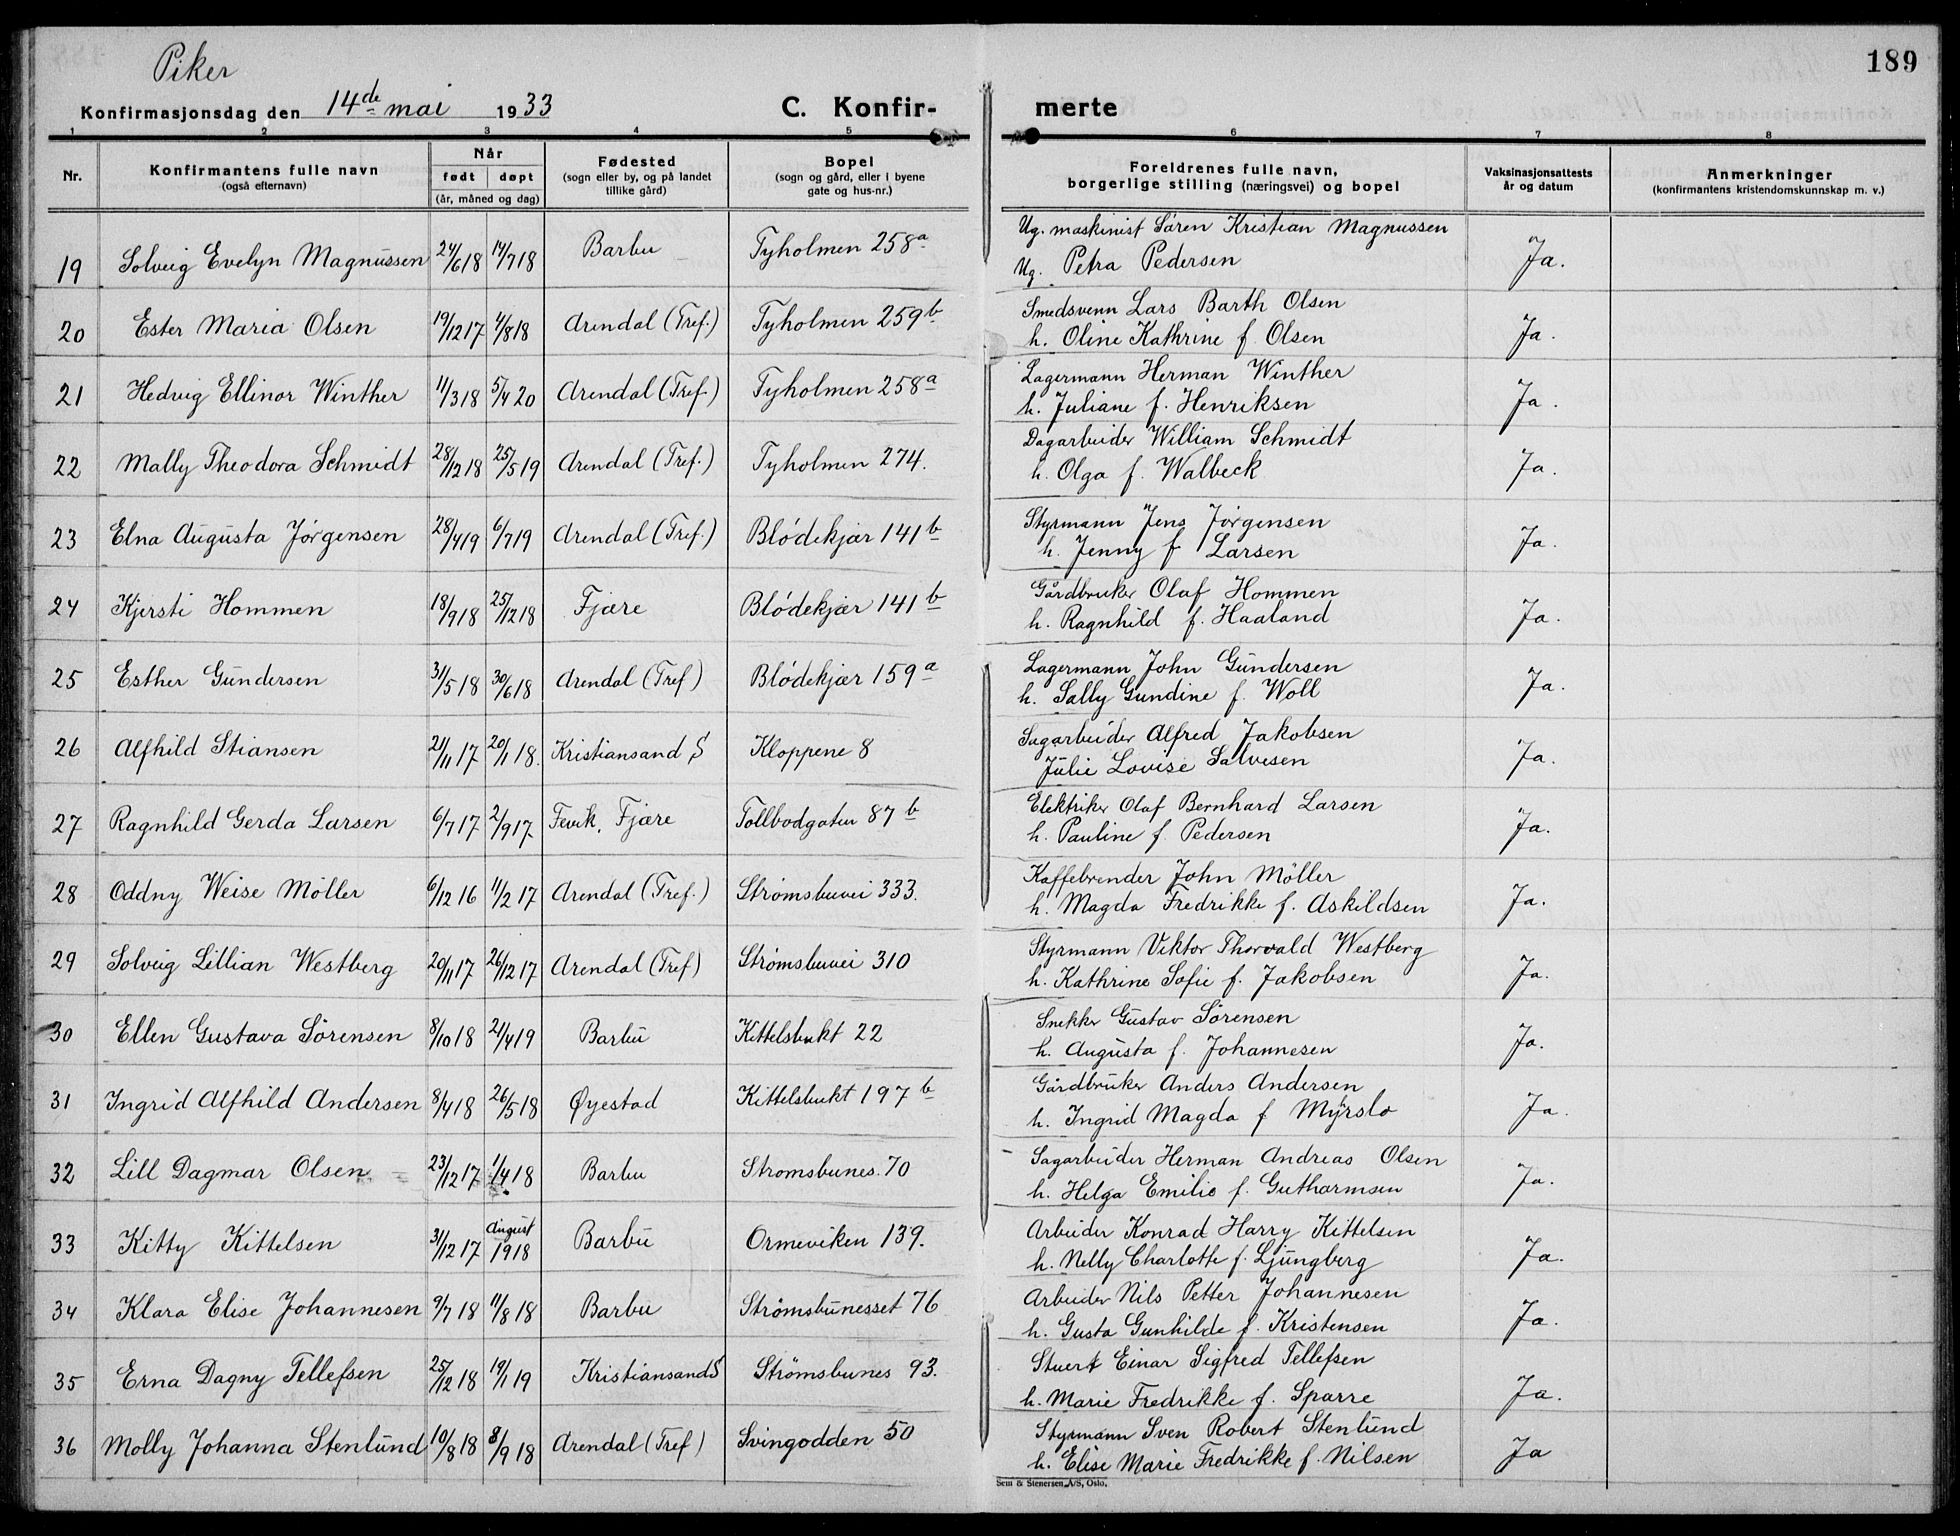 Piker
189
Konfirmasjonsdag den 14de mai 1933
C. Konfir-
merte
1 2 3 4 5 6 7 8
Nr.
Konfirmantens fulle navn
(også efternavn)
Når
født døpt
(år, måned og dag)
Fødested
(sogn eller by, og på landet
tillike gård)
Bopel
(sogn og gård, eller i byene
gate og hus-nr.)
Foreldrenes fulle navn,
borgerlige stilling (næringsvei) og bopel
Vaksinasjonsattests
år og datum
Anmerkninger
(konfirmantens kristendomskunnskap m. v.)
19 Solveig Evelyn Magnussen 24/6 18 14/7 18 Barbu Tyholmen 258a
Ug. maskinist Sören Kristian Magnussen
Ug. Petra Pedersen
Ja.
20 Ester Maria Olsen 19/12 17 4/8 18 Arendal (Tref.) Tyholmen 259b
Smedsvenn Lars Barth Olsen
h. Oline Kathrine f. Olsen
Ja.
21 Hedvig Ellinor Winther 11/3 18 5/4 20 Arendal (Tref.) Tyholmen 258a
Lagermann Herman Winther
h. Juliane f. Henriksen
Ja.
22 Mally Theodora Schmidt 28/12 18 25/5 19 Arendal (Tref.) Tyholmen 274.
Dagarbeider William Schmidt
h. Olga f. Walbeck
Ja.
23 Elna Augusta Jörgensen 28/4 19 6/7 19 Arendal (Tref.) Blödekjær 141b
Styrmann Jens Jörgensen
h. Jenny f Larsen
Ja.
24 Kjersti Hommen 18/9 18 25/12 18 Fjære Blödekjær 141b
Gårdbruker Olaf Hommen
h. Ragnhild f. Haaland
Ja.
25 Esther Gundersen 31/5 18 30/6 18 Arendal (Tref) Blödekjær 159a
Lagermann John Gundersen
h. Sally Gundine f. Woll
Ja.
26 Alfhild Stiansen 21/11 17 20/1 18. Kristiansand S Kloppene 8
Sagarbeider Alfred Jakobsen
Julie Lovise Salvesen
Ja.
27 Ragnhild Gerda Larsen 6/7 17 2/9 17 Fevik, Fjære Tollbodgaten 87b
Elektriker Olaf Bernhard Larsen
h. Pauline f. Pedersen
Ja.
28 Oddny Weise Möller 6/12 16 11/2 17 Arendal (Tref.) Strömsbuvei 333.
Kaffebrender John Möller
h. Magda Fredrikke f. Askildsen
Ja.
29 Solveig Lillian Westberg 20/11 17 26/12 17 Arendal (Tref) Strömsbuvei 310
Styrmann Viktor Thorvald Westberg
h. Kathrine Sofie f. Jakobsen
Ja.
30 Ellen Gustava Sörensen 8/10 18 21/4 19 Barbu Kittelsbukt 22
Snekker Gustav Sörensen
h. Augusta f. Johannesen
Ja.
31 Ingrid Alfhild Andersen 8/4 18 26/5 18 Øyestad Kittelsbukt 197b
Gårdbruker Anders Andersen
h. Ingrid Magda f Myrslo
Ja.
32 Lill Dagmar Olsen 23/12 17 1/4 18 Barbu Stromsbunes. 70
Sagarbeider Herman Andreas Olsen
h. Helga Emilie f. Guthormsen
Ja.
33 Kitty Kittelsen 31/12 17 August 1918 Barbu Ormeviken 139.
Arbeider Konrad Harry Kittelsen
h. Nelly Charlotte f. Ljungberg
Ja.
34 Klara Elise Johannesen 9/7 18 11/8 18 Barbu Strömsbunesset 76
Arbeider Nils Petter Johannesen
h. Gusta Gunhilde f. Kristensen
Ja.
35 Erna Dagny Tellefsen 25/12 18 19/1 19 Kristiansand S Strömsbunes 93.
Stuert Einar Sigfred Tellefsen
h. Marie Fredrikke f. Sparre
Ja.
36 Molly Johanna Stenlund 10/8 18 8/9 18 Arendal (Tref) Svingodden 50
Styrmann Sven Robert Stenlund
h. Elise Marie Fredrikke f. Nilsen
Ja
Sem & Stenersen A/S, Oslo.